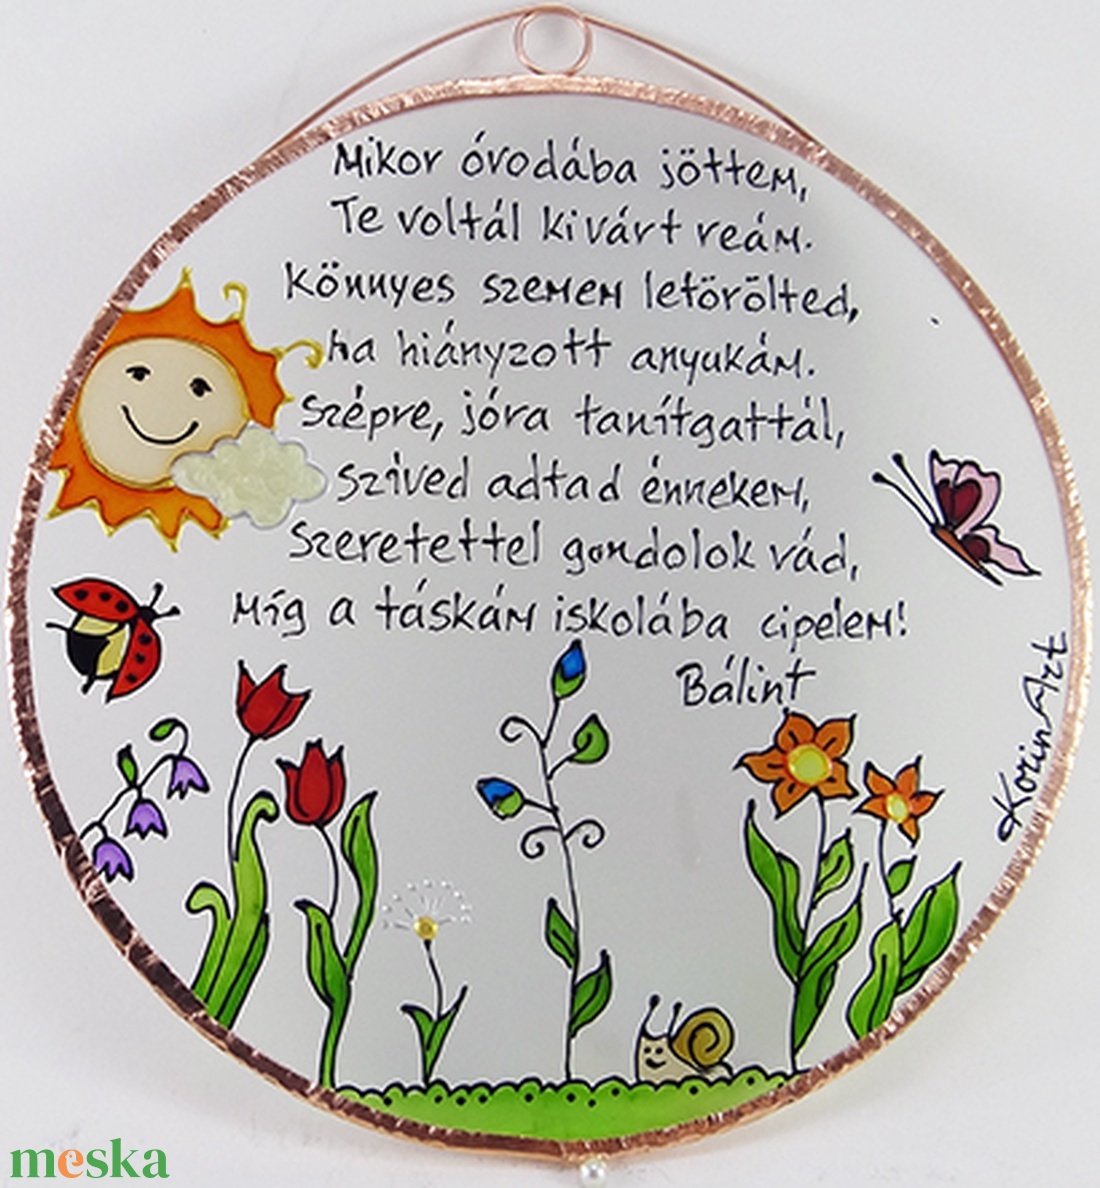 Mikor óvodába jöttem,
Te voltál ki várt reám.
Könnyes szemem letörölted,
ha hiányzott anyukám.
Szépre, jóra tanítgattál,
szíved adtad énnekem,
Szeretettel gondolok rád,
Míg a táskám iskolába cipelem!
Bálint
KorinArt
meska